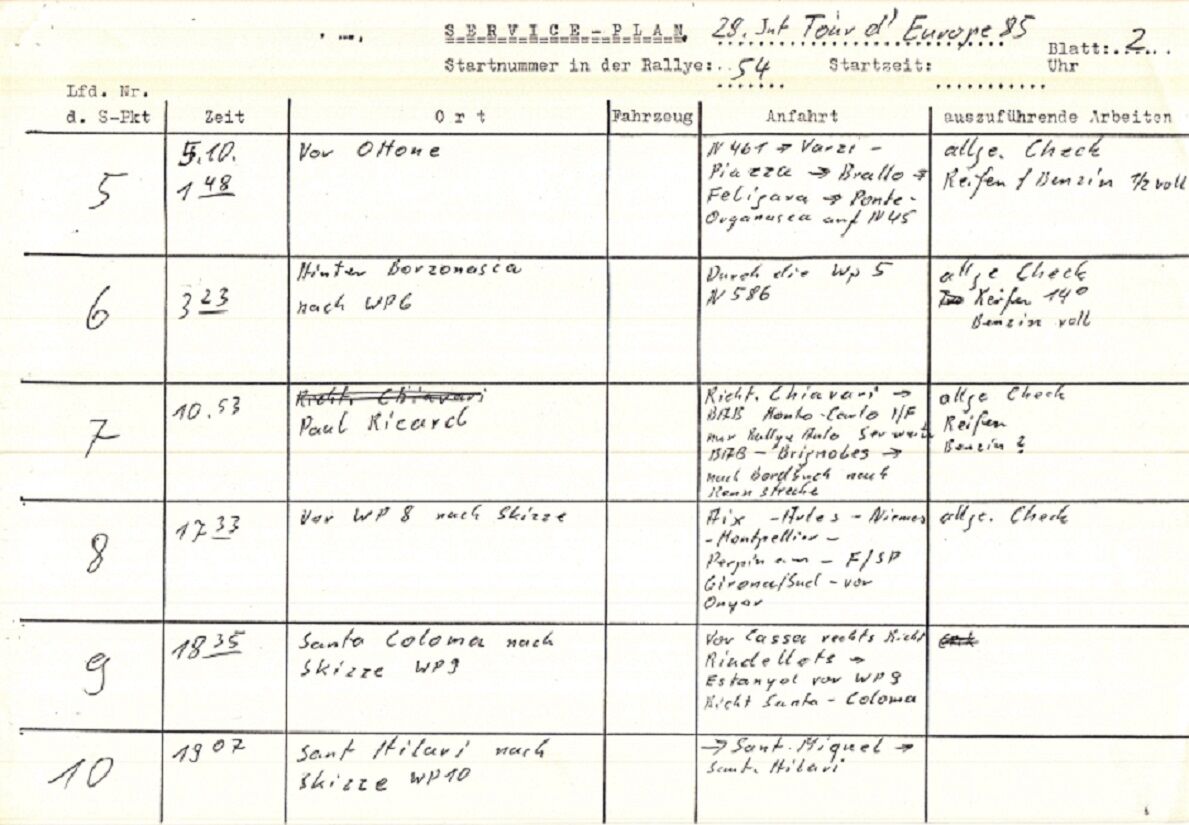 SERVICE-PLAN 29. Int Tour d' Europe 85
Blatt: 2
Startnummer in der Rallye: 54 Startzeit: Uhr
Lfd. Nr.
d. S-Pkt Zeit Ort Fahrzeug Anfahrt auszuführende Arbeiten
5
5.10.
1 48
Vor Ottone
N 461 → Varzi -
Piazza → Brallo →
Feligara → Ponte-
Organasca auf N45
allge. Check
Reifen / Benzin 1/2 voll
6
3 23
Hinter Borzonasca
nach WP6
Durch die Wp 5
N 586
allge Check
Reifen 14°
Benzin voll
7
10.53
Richt. Chiavari
Paul Ricard
Richt. Chiavari →
BAB Monto-Carlo I/F
nur Rallye Auto Ser weite
BAB - Brignoles →
nach Bordbuch nach
Rennstrecke
allge Check
Reifen
Benzin ?
8
17 33
Vor WP 8 nach Skizze
Aix - Arles - Niemes
- Montpellier -
- F/SP
Girona/Sud - vor
Onyar
allge. Check
9
18 35
Santa Coloma nach
Skizze WP9
Vor Cassa rechts Richt
Rindellots →
Estanyol vor WP9
Richt Santa - Coloma
10
19 07
Sant Hilari nach
Skizze WP10
→ Sant. Miquel →
Sant. Hilari